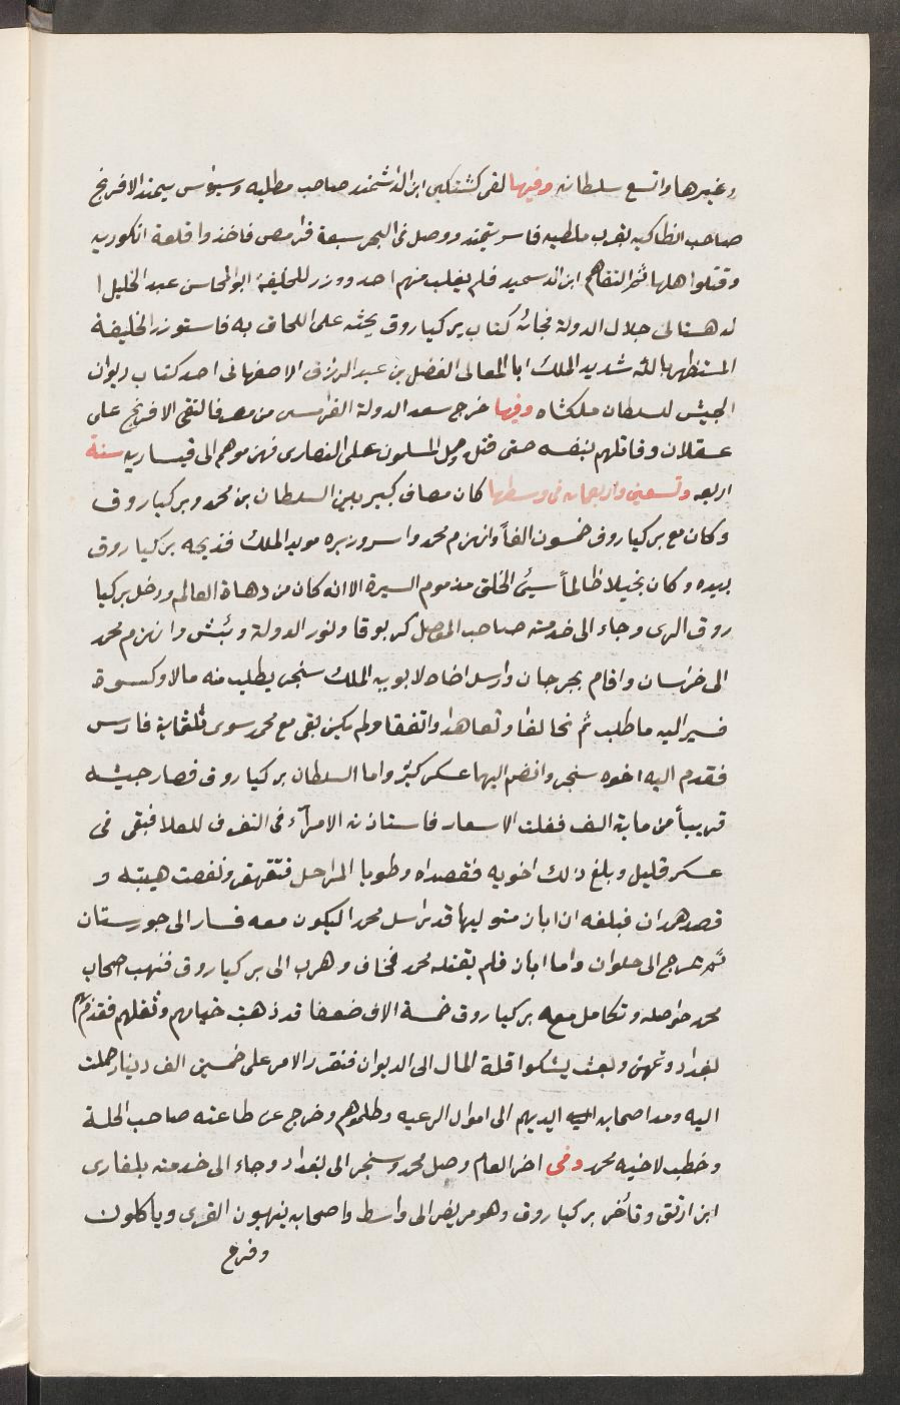 وغيرها واتسع سلطانه وفيها لقى كشتكين ابن الدانشمند صاحب مطليه وسيواس بيمند الافرنج
صاحب انطاكيه بقرب ملطيه فاسر بيمند ووصل فى البحر سبعة قوامص فاخذوا قلعة انكوريه
وقتلوا اهلها ثم التقاهم ابن الدسميد فلم يفلت منهم احد ووزر للخليفة ابو المحاسن عبد الجليل ا
لدهستانى جلال الدولة فجائه كتاب بركياروق يحثه على اللحاق به فاستوزر الخليفة
المستظهر بالله شديد الملك ابا المعالى الفضل بن عبد الرزاق الاصفهانى احد كتاب ديوان
الجيش للسلطان ملكشاه وفيها خرج سعد الدولة القوامسى من مصر فالتقى الافرنج على
عسقلان وقاتلهم بنفسه حتى قتل وحمل المسلمون على النصارى فهزموهم الى قيساريه سنة
اربعه وتسعين واربعمائه فى وسطها كان مصاف كبير بين السلطان بن محمد وبركياروق
وكان مع بركياروق خمسون الفاً وانهزم محمد واسر وزيره مويد الملك فذبحه بركياروق
بيده وكان بخيلا ظالماً سيئ الخلق مذموم السيرة الا انه كان من دهاة العالم ودخل بركيا
روق الرى وجاء الى خدمته صاحب الموصل كربوقا ونور الدولة دبيس وانهزم محمد
الى خراسان واقام بجرجان وارسل اخاه لابويه الملك سنجر يطلب منه مالا وكسوة
فسير اليه ما طلب ثم تحالفا وتعاهدا واتفقا ولم يكن بقى مع محمد سوى ثلثماية فارس
فقدم اليه اخوه سنجر وانضم اليهما عسكر كثير واما السلطان بركياروق فصار جيشه
قريباً من ماية الف فغلت الاسعار فاستاذنه الامراء فى التفرق للغلا فبقى فى
عسكر قليل وبلغ ذلك اخويه فقصداه وطويا المراحل فتقهقر ونقصت هيبته و
قصد همدان فبلغه ان اباز متوليها قد راسل محمدا ليكون معه فسار الى خورستان
ثم خرج الى حلوان واما اباز فلم يقبله محمد فخاف وهرب الى بركياروق فنهب اصحاب
محمد حواصله وتكامل معه بركياروق خمسة الاف ضعفا قد ذهبت خيامهم وثقلهم فقدم
بغداد وتمرض وبعث يشكوا قلة المال الى الديوان فتقرر الامر على خمسين الف دينار حملت
اليه ومد اصحابه ايديهم الى اموال الرعيه وظلموهم وخرج عن طاعته صاحب الحلة
وخطب لاخيه محمد وفى اخر العام وصل محمد وسنجر الى بغداد وجاء الى خدمته بلغازى
ابن ارتق وتأخر بركياروق وهو مريض الى واسط واصحابه ينهبون القرى وياكلون
وفزع